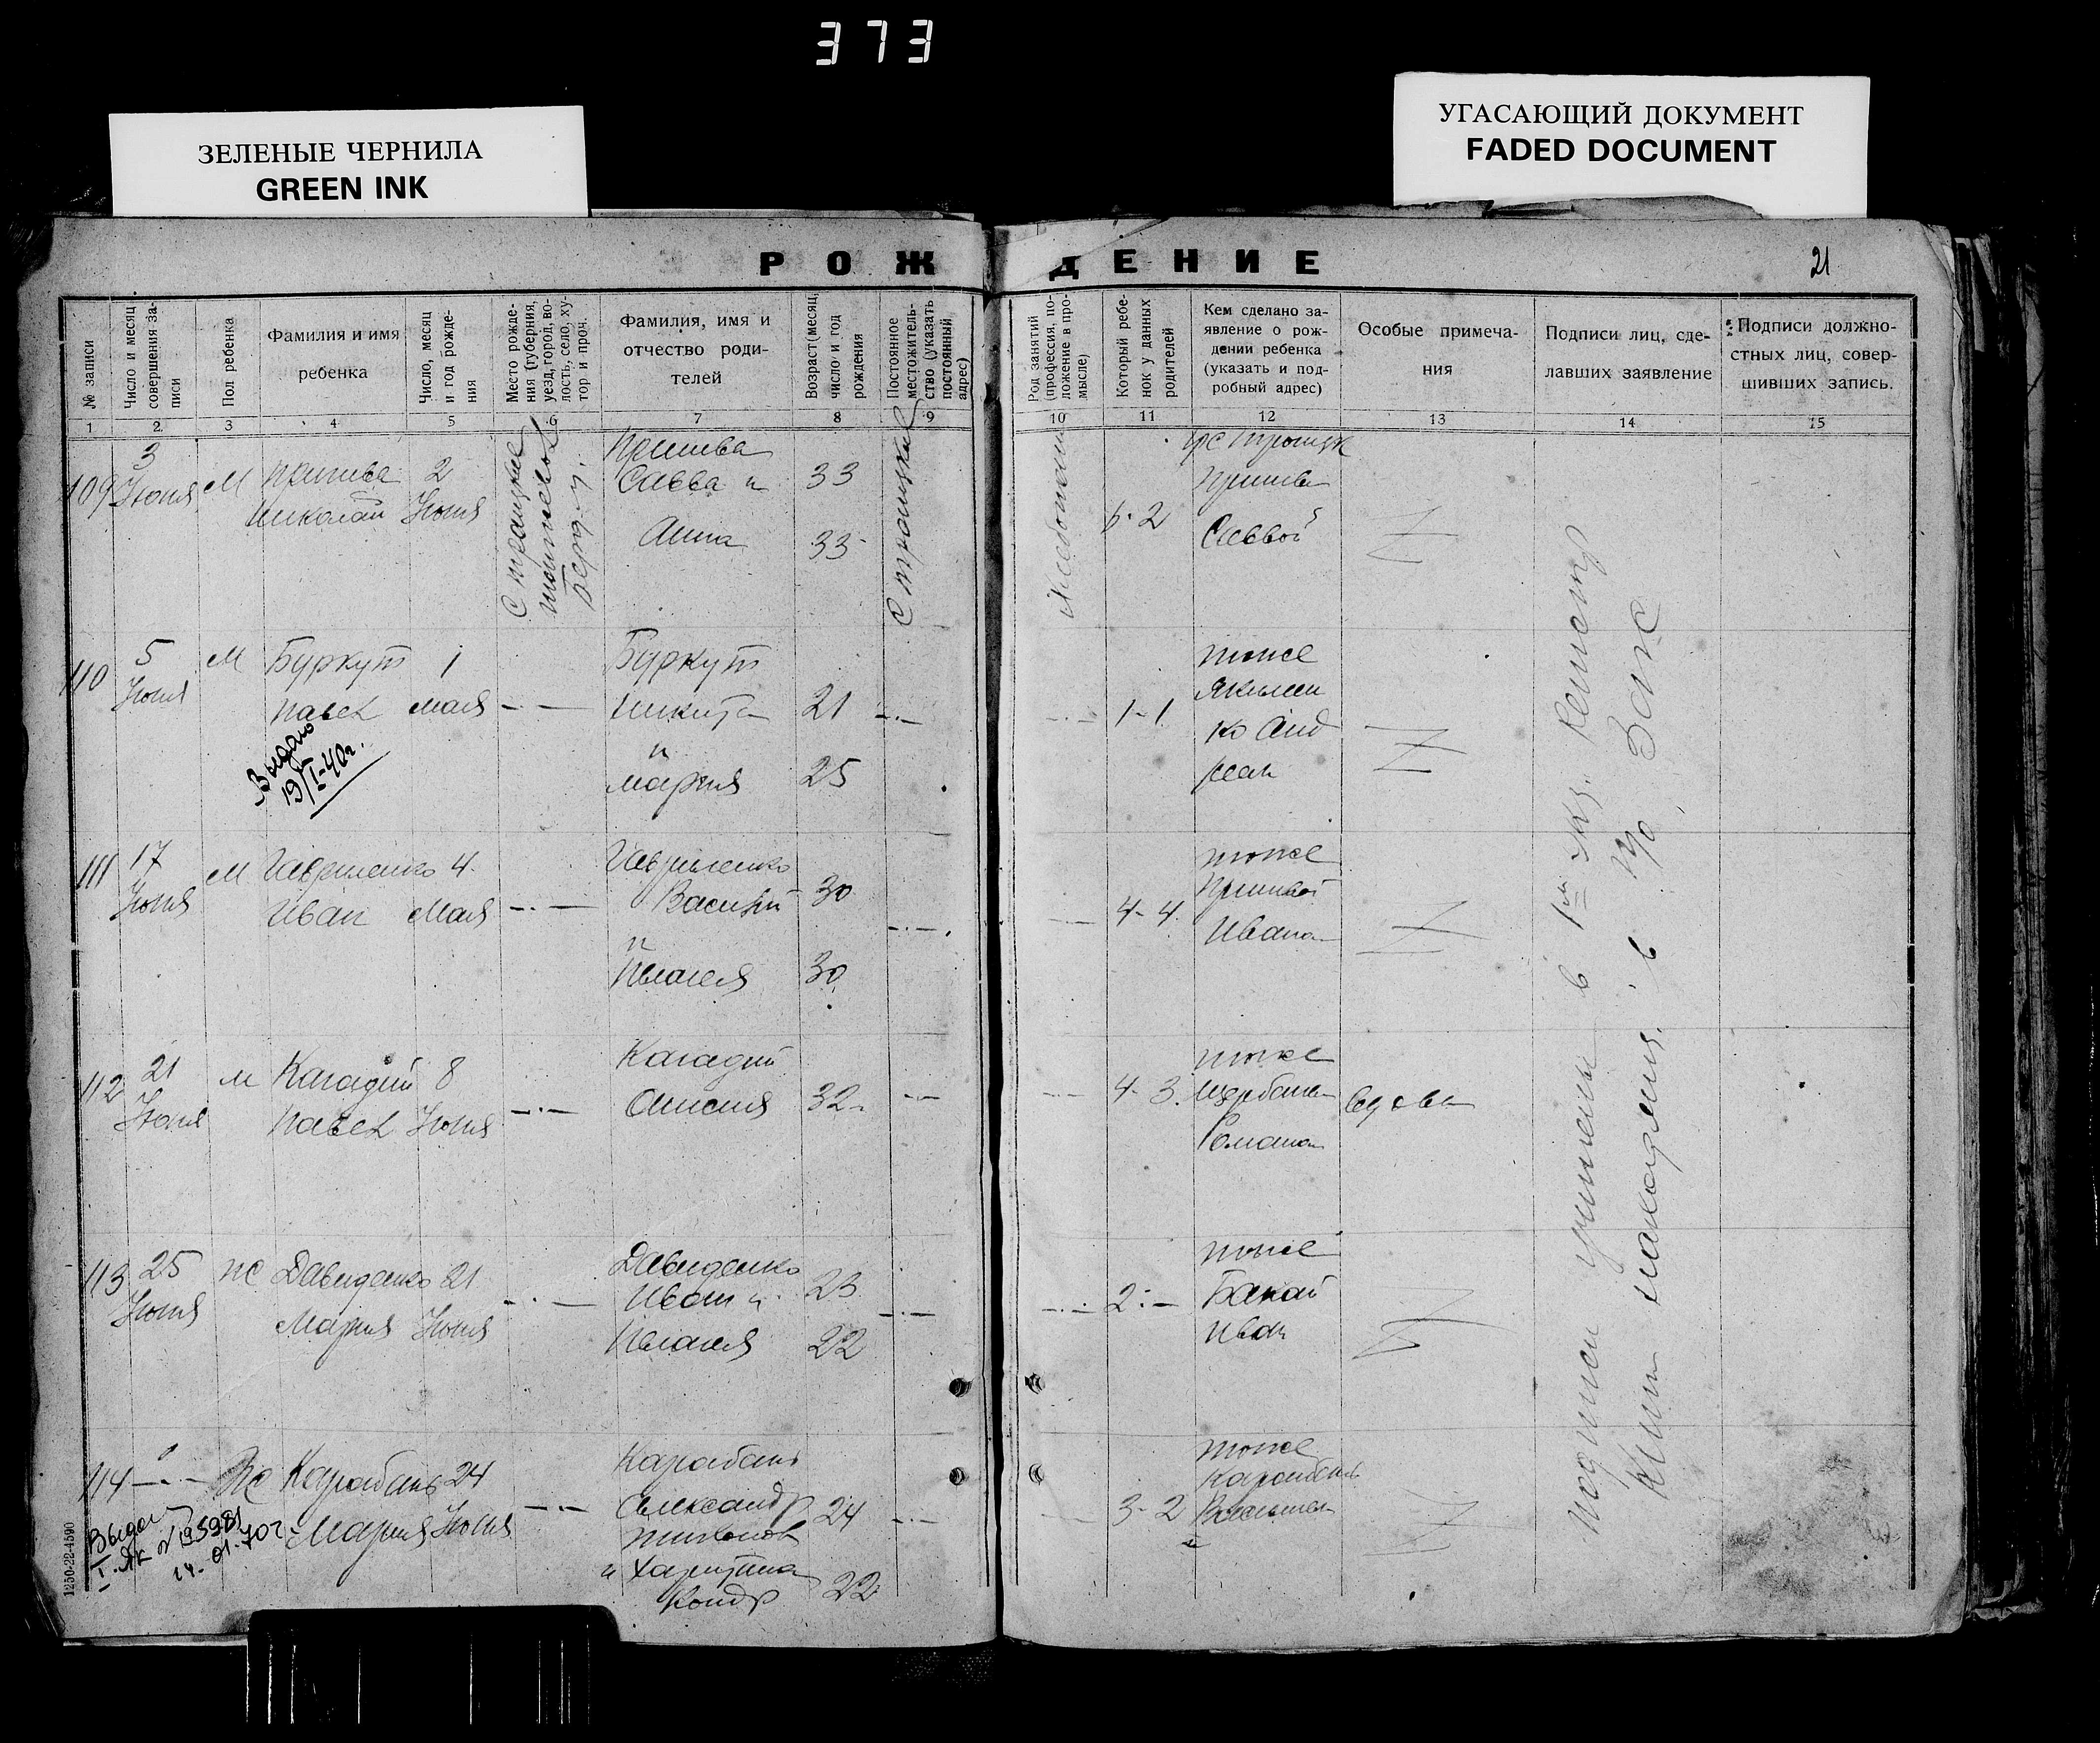 373
ЗЕЛЕНЫЕ ЧЕРНИЛА
GREEN INK
УГАСАЮЩИЙ ДОКУМЕНТ
FADED DOCUMENT
РОЖДЕНИЕ
21
№ записи
Число и месяц
совершения за-
писи
Пол ребенка
Фамилия и имя
ребенка
Число, месяц
и год рожде-
ния
Место рожде-
ния (губерния,
уезд, город, во-
лость, село, ху-
тор и проч.
Фамилия, имя и
отчество роди-
телей
Возраст (месяц,
число и год
рождения
Постоянное
местожитель-
ство (указать
постоянный
адрес)
Род занятий
(профессия, по-
ложение в про-
мысле)
Который ребе-
нок у данных
родителей
Кем сделано за-
явление о рож-
дении ребенка
(указать и под-
робный адрес)
Особые примеча-
ния
Подписи лиц, сде-
лавших заявление
Подписи должно-
стных лиц, совер-
шивших запись.
1 2 3 4 5 6 7 8 9 10 11 12 13 14 15
109
3
Июня
М
Николай
2
Июня
С Троицкое
Савва и
33
Анна
33
С Троицкое
6-2
Саввой
110
5
Июня
М
Буркут
Павел
1
мая
Буркут
Никита
21
и
Мария
25
1-1
тоже
Выдано
19/I-40г.
111
17
Июня
М
Гавриленко
Иван
4
Мая
Гавриленко
Василий
30
и
Пелагея
30
4-4
тоже
Ивана
112
21
Июня
М
Кагадий
Павел
8
Июня
Кагадий
Анисия
32
4-3
тоже
Щербана
Романа
вдова
113
25
Июня
Ж
Давиденко
Мария
21
Июня
Давиденко
Иван и
23
Пелагея
22
2
тоже
Бакай
Иван
114
Ж
Карабань
Мария
24
Июня
Карабань
Александр
24
Тихонов
и Харитина
Кондр
22
3-2
тоже
Карабань
Подписи учинены в 1м экз.
книги находящия. в Загс
14.01.70г
1250-22-4590